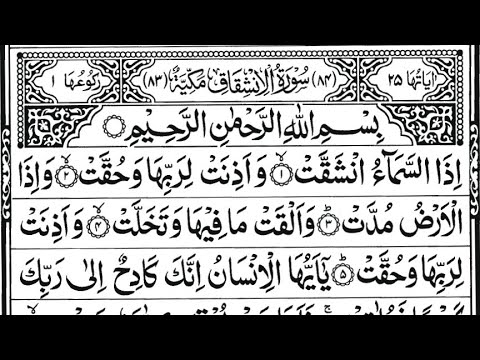 اٰیاتُهَا ۲۵ (۸۴) سُوْرَةُ الْاِنْشِقَاقِ مَكِّیَّةٌ (۸۳) رُكُوْعُهَا ۱
بِسْمِ اللّٰهِ الرَّحْمٰنِ الرَّحِیْمِ
اِذَا السَّمَآءُ انْشَقَّتْ ۱ وَ اَذِنَتْ لِرَبِّهَا وَ حُقَّتْ ۲ وَ اِذَا
الْاَرْضُ مُدَّتْ ۳ وَ اَلْقَتْ مَا فِیْهَا وَ تَخَلَّتْ ۴ وَ اَذِنَتْ
لِرَبِّهَا وَ حُقَّتْ ۵ یٰۤاَیُّهَا الْاِنْسَانُ اِنَّكَ كَادِحٌ اِلٰی رَبِّكَ